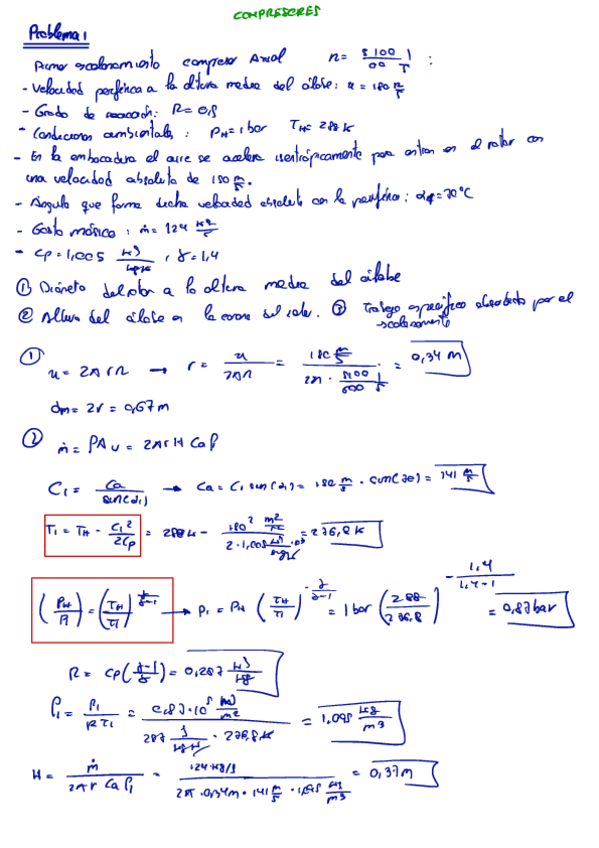 COMPRESORES
Problema 1
Primer escalonamiento compresor Axial n = 5100/60 1/s :
- Velocidad periférica a la altura media del álabe: u = 180 m/s
- Grado de reacción: R = 0,5
- Condiciones ambientales: PH = 1 bar TH = 288 K
- En la embocadura el aire se acelera isentrópicamente para entrar en el rotor con
una velocidad absoluta de 150 m/s.
- Angulo que forma dicha velocidad absoluta con la periférica: α1 = 70°C
- Gasto másico: ṁ = 124 kg/s
- Cp = 1,005 kJ/kgK, γ = 1,4
① Diámetro del rotor a la altura media del álabe
② Altura del álabe en la corona del rotor. ③ Trabajo específico absorbido por el
escalonamiento
①
u = 2πrn → r = u/2πn = = 0,34 m
dm = 2r = 0,67 m
②
ṁ = ρAv = 2πrH Ca ρ
C1 = Ca/sin(α1) → Ca = C1 sin(α1) = 150 m/s · sin(70) = 141 m/s
T1 = TH - C1²/2Cp = 288 K - = 276,8 K
(PH/P1) = (TH/T1)^γ/γ-1 → P1 = PH (TH/T1)^-γ/γ-1 = 1 bar (288/276,8)^-1,4/1,4-1 = 0,87 bar
R = Cp(γ-1/γ) = 0,287
ρ1 = P1/RT1 = = 1,095 kg/m3
H = ṁ/2πr Ca ρ1 = = 0,37 m